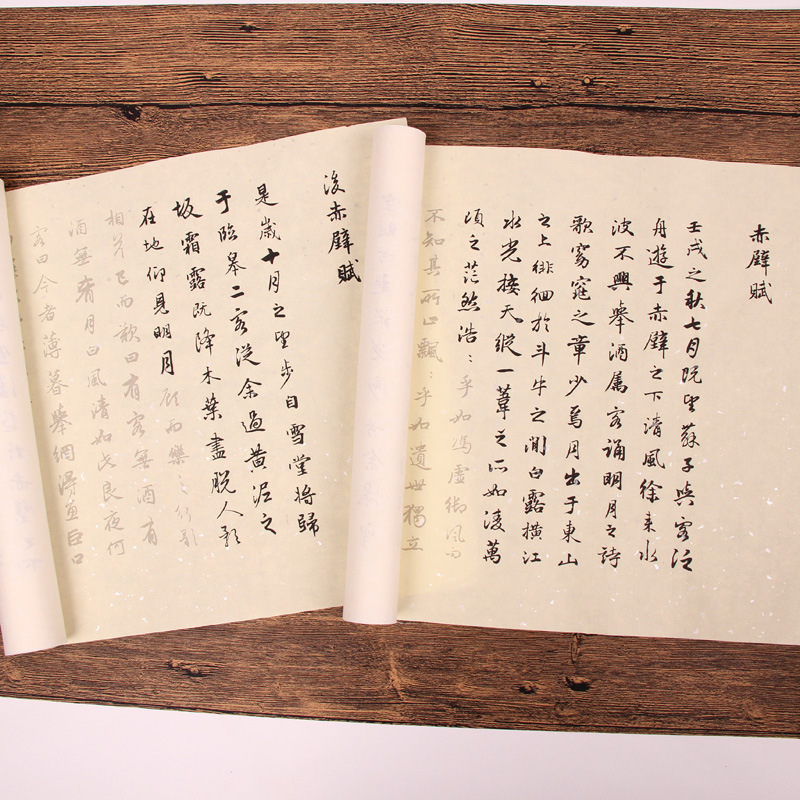 赤壁賦
壬戌之秋七月既望蘇子與客泛
舟遊于赤壁之下清風徐来水
波不興舉酒属客誦明月之詩
歌窈窕之章少焉月出于東山
之上徘徊於斗牛之間白露横江
水光接天縱一葦之所如凌萬
頃之茫然浩：乎如馮虛御風而
不知其所止飄：乎如遺世獨立
後赤壁賦
是歲十月之望步自雪堂將歸
于臨皋二客從余過黄泥之
坂霜露既降木葉盡脱人影
在地仰見明月顧而樂之行歌
相答已而歎曰有客無酒有
酒無肴月白風清如此良夜何
客曰今者薄暮舉網得魚巨口